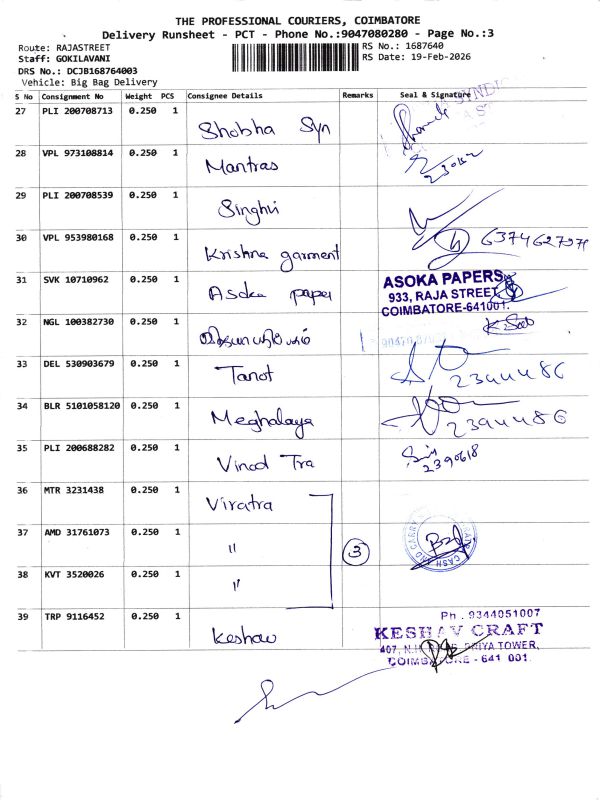 THE PROFESSIONAL COURIERS, COIMBATORE
Delivery Runsheet - PCT - Phone No.:9047080280 - Page No.:3
Route: RAJASTREET
Staff: GOKILAVANI
DRS No.: DCJB168764003
Vehicle: Big Bag Delivery
RS No.: 1687640
RS Date: 19-Feb-2026
S No Consignment No Weight PCS Consignee Details Remarks Seal & Signature
27 PLI 200708713 0.250 1 Shobha Syn
28 VPL 973108814 0.250 1 Mantras
29 PLI 200708539 0.250 1 Singhvi
30 VPL 953980168 0.250 1 Krishna garment
31 SVK 10710962 0.250 1 Asoka paper ASOKA PAPERS
933, RAJA STREET,
COIMBATORE-641001.
32 NGL 100382730 0.250 1
33 DEL 530903679 0.250 1 Tanot 2344486
34 BLR 5101058120 0.250 1 Meghalaya 2344486
35 PLI 200688282 0.250 1 Vinod Tra 2390618
36 MTR 3231438 0.250 1 Viratra
37 AMD 31761073 0.250 1 " 3
38 KVT 3520026 0.250 1 "
39 TRP 9116452 0.250 1 Keshav Ph. 9344051007
KESHAV CRAFT
407, PRIYA TOWER,
COIMBATORE - 641 001.